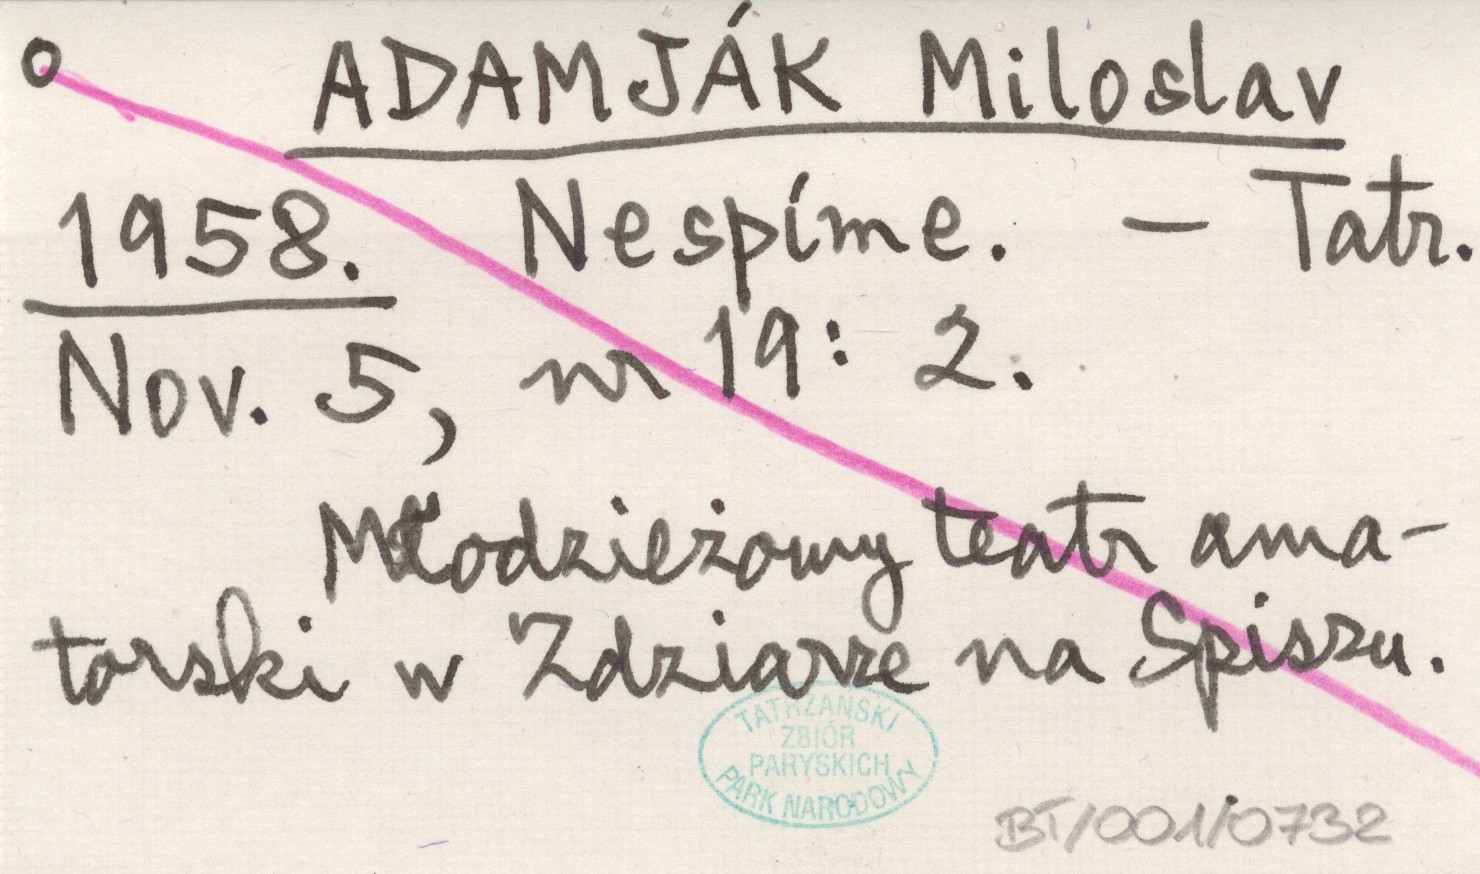 ADAMJÁK Miloslav
1958. Nespíme. – Tatr.
Nov. 5, nr 19: 2.
Młodzieżowy teatr ama-
torski w Zdziarze na Spiszu.
TATRZAŃSKI
ZBIÓR
PARYSKICH
PARK NARODOWY
BT/001/0732